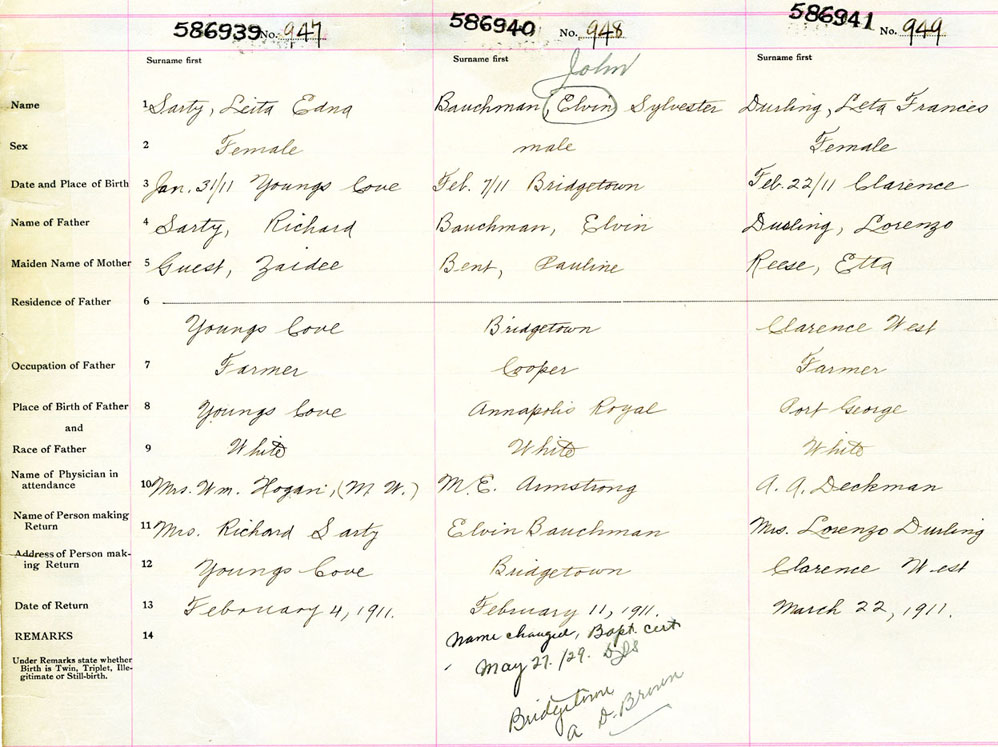 586939 No. 947 586940 No. 948 586941 No. 949
Surname first Surname first Surname first
John
Name 1 Sarty, Leita Edna Bauchman, Elvin Sylvester Durling, Leta Frances
Sex 2 Female male Female
Date and Place of Birth 3 Jan. 31/11 Youngs Cove Feb. 7/11 Bridgetown Feb. 22/11 Clarence
Name of Father 4 Sarty, Richard Bauchman, Elvin Durling, Lorenzo
Maiden Name of Mother 5 Guest, Zaidee Bent, Pauline Reese, Etta
Residence of Father 6
Youngs Cove Bridgetown Clarence West
Occupation of Father 7 Farmer Cooper Farmer
Place of Birth of Father 8 Youngs Cove Annapolis Royal Port George
and
Race of Father 9 White White White
Name of Physician in
attendance 10 Mrs. Wm. Hogan, (M. W.) M. E. Armstrong A. A. Deckman
Name of Person making
Return 11 Mrs. Richard Sarty Elvin Bauchman Mrs. Lorenzo Durling
Address of Person mak-
ing Return 12 Youngs Cove Bridgetown Clarence West
Date of Return 13 February 4, 1911. February 11, 1911. March 22, 1911.
REMARKS 14 Name changed, Bapt. cert
Under Remarks state whether
Birth is Twin, Triplet, Ille-
gitimate or Still-birth.
May 27/29.
Bridgetown
A. D. Brown